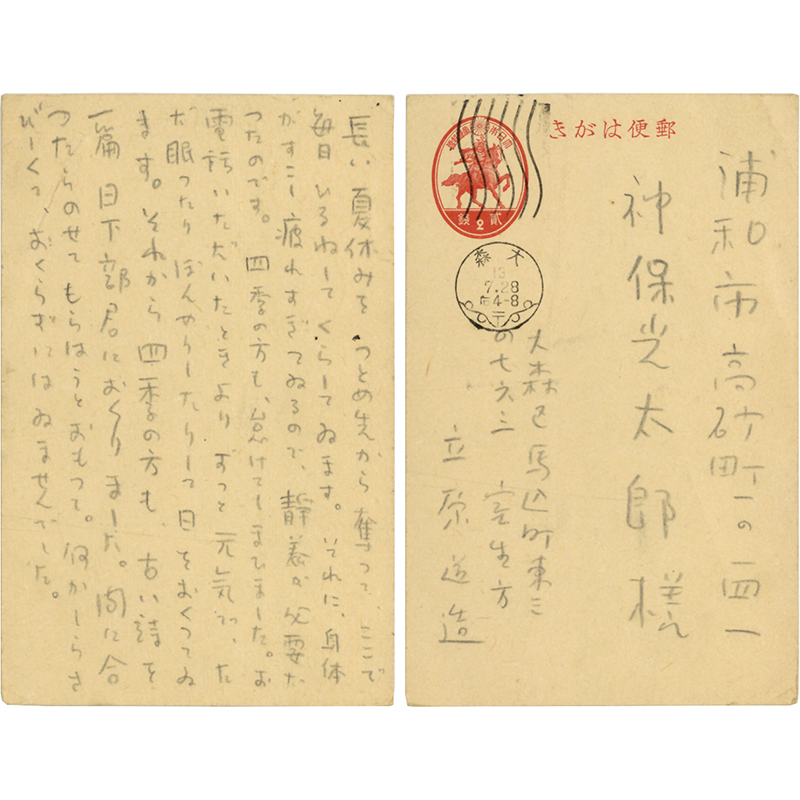 長い夏休みを つとめ先から奪つて、ここで
毎日ひるねしてくらしてゐます。それに、身体
がすこし疲れすぎてゐるので、静養が必要だ
つたのです。四季の方も、怠けてしまひました。お
電話いただいたときより ずつと元気で、た
だ眠つたりぼんやりしたりして日をおくつてゐ
ます。それから四季の方も、古い詩を
一篇 日下部君におくりました。間に合
つたらのせてもらはうとおもつて。何かしらさ
びしくて、おくらずにはゐませんでした。
郵便はがき
貳
2
銭
大森
13
7.28
后4-8
浦和市高砂町一の四一
神保光太郎様
大森区馬込町東三
の七六三 室生方
立原道造